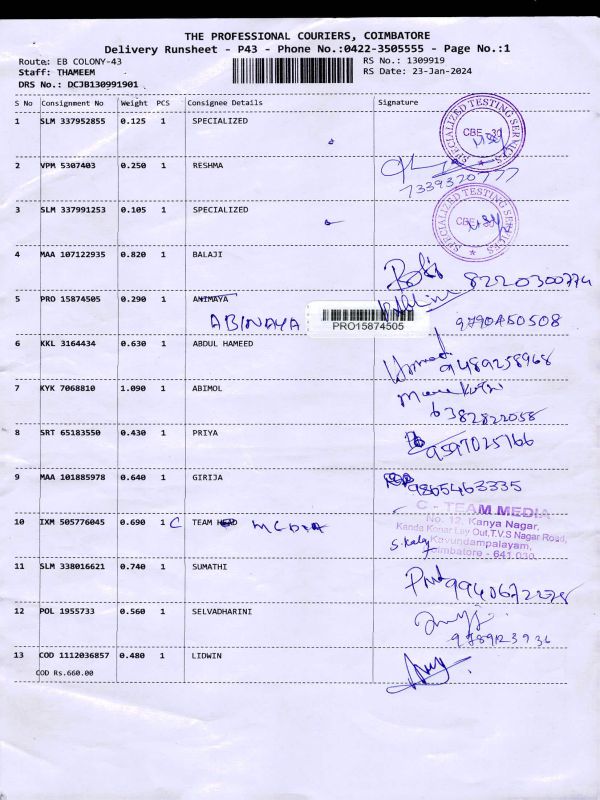 THE PROFESSIONAL COURIERS, COIMBATORE
Delivery Runsheet - P43 - Phone No.:0422-3505555 - Page No.:1
Route: EB COLONY-43
Staff: THAMEEM
DRS No.: DCJB130991901
RS No.: 1309919
RS Date: 23-Jan-2024
S No Consignment No Weight PCS Consignee Details Signature
1 SLM 337952855 0.125 1 SPECIALIZED
SPECIALIZED TESTING SERVICES CBE - 30
2 VPM 5307403 0.250 1 RESHMA
7339320777
3 SLM 337991253 0.105 1 SPECIALIZED
SPECIALIZED TESTING SERVICES
4 MAA 107122935 0.820 1 BALAJI
8220300774
5 PRO 15874505 0.290 1 ANIMAYA
ABINAYA PRO15874505 9790450508
6 KKL 3164434 0.630 1 ABDUL HAMEED
9489258968
7 KYK 7068810 1.090 1 ABIMOL
6382822058
8 SRT 65183550 0.430 1 PRIYA
9597025166
9 MAA 101885978 0.640 1 GIRIJA
9865463335
10 IXM 505776045 0.690 1 C TEAM MEDIA
C - TEAM MEDIA
No. 12, Kanya Nagar,
Kanda Konar Lay Out,T.V.S Nagar Road,
Kavundampalayam,
Coimbatore - 641 030
11 SLM 338016621 0.740 1 SUMATHI
12 POL 1955733 0.560 1 SELVADHARINI
13 COD 1112036857 0.480 1 LIDWIN
COD Rs.660.00